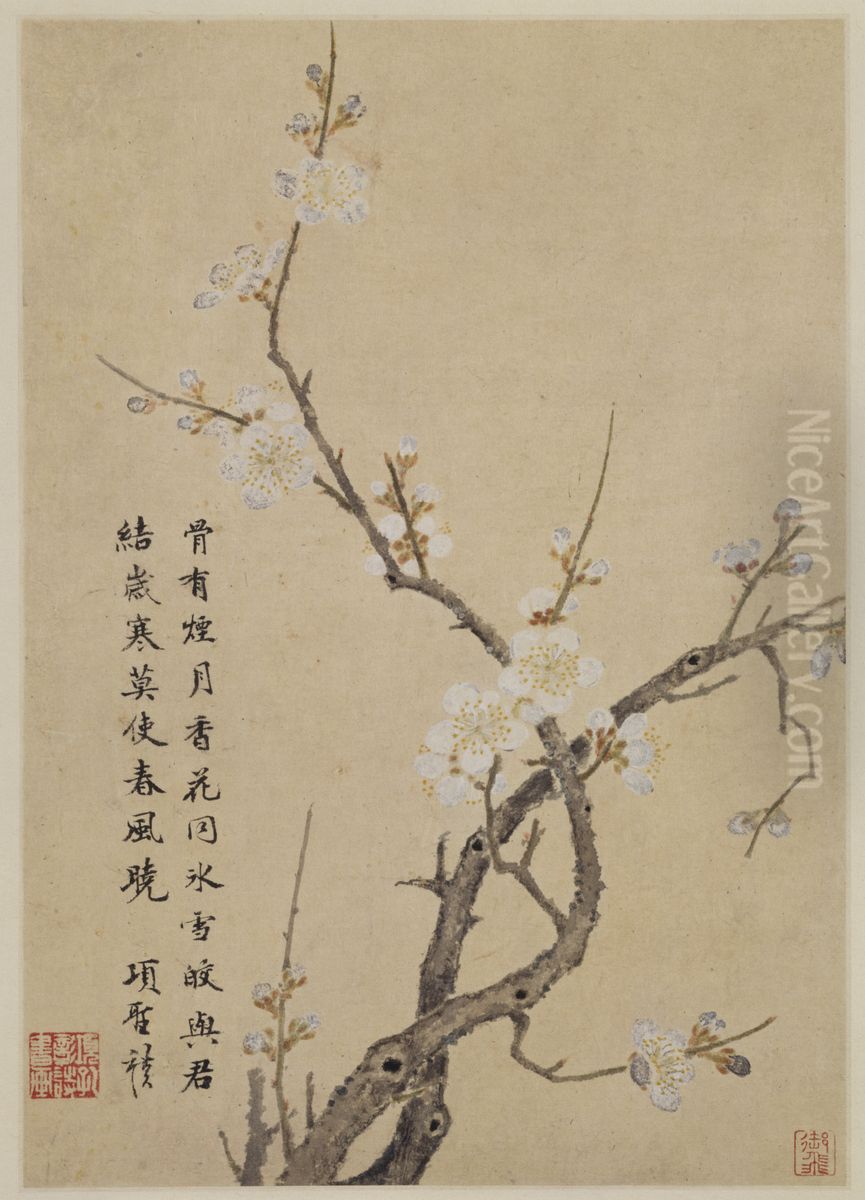 骨有煙月香花同冰雪皎與君
結歲寒莫使春風曉 項聖謨
NiceArtGallery.com